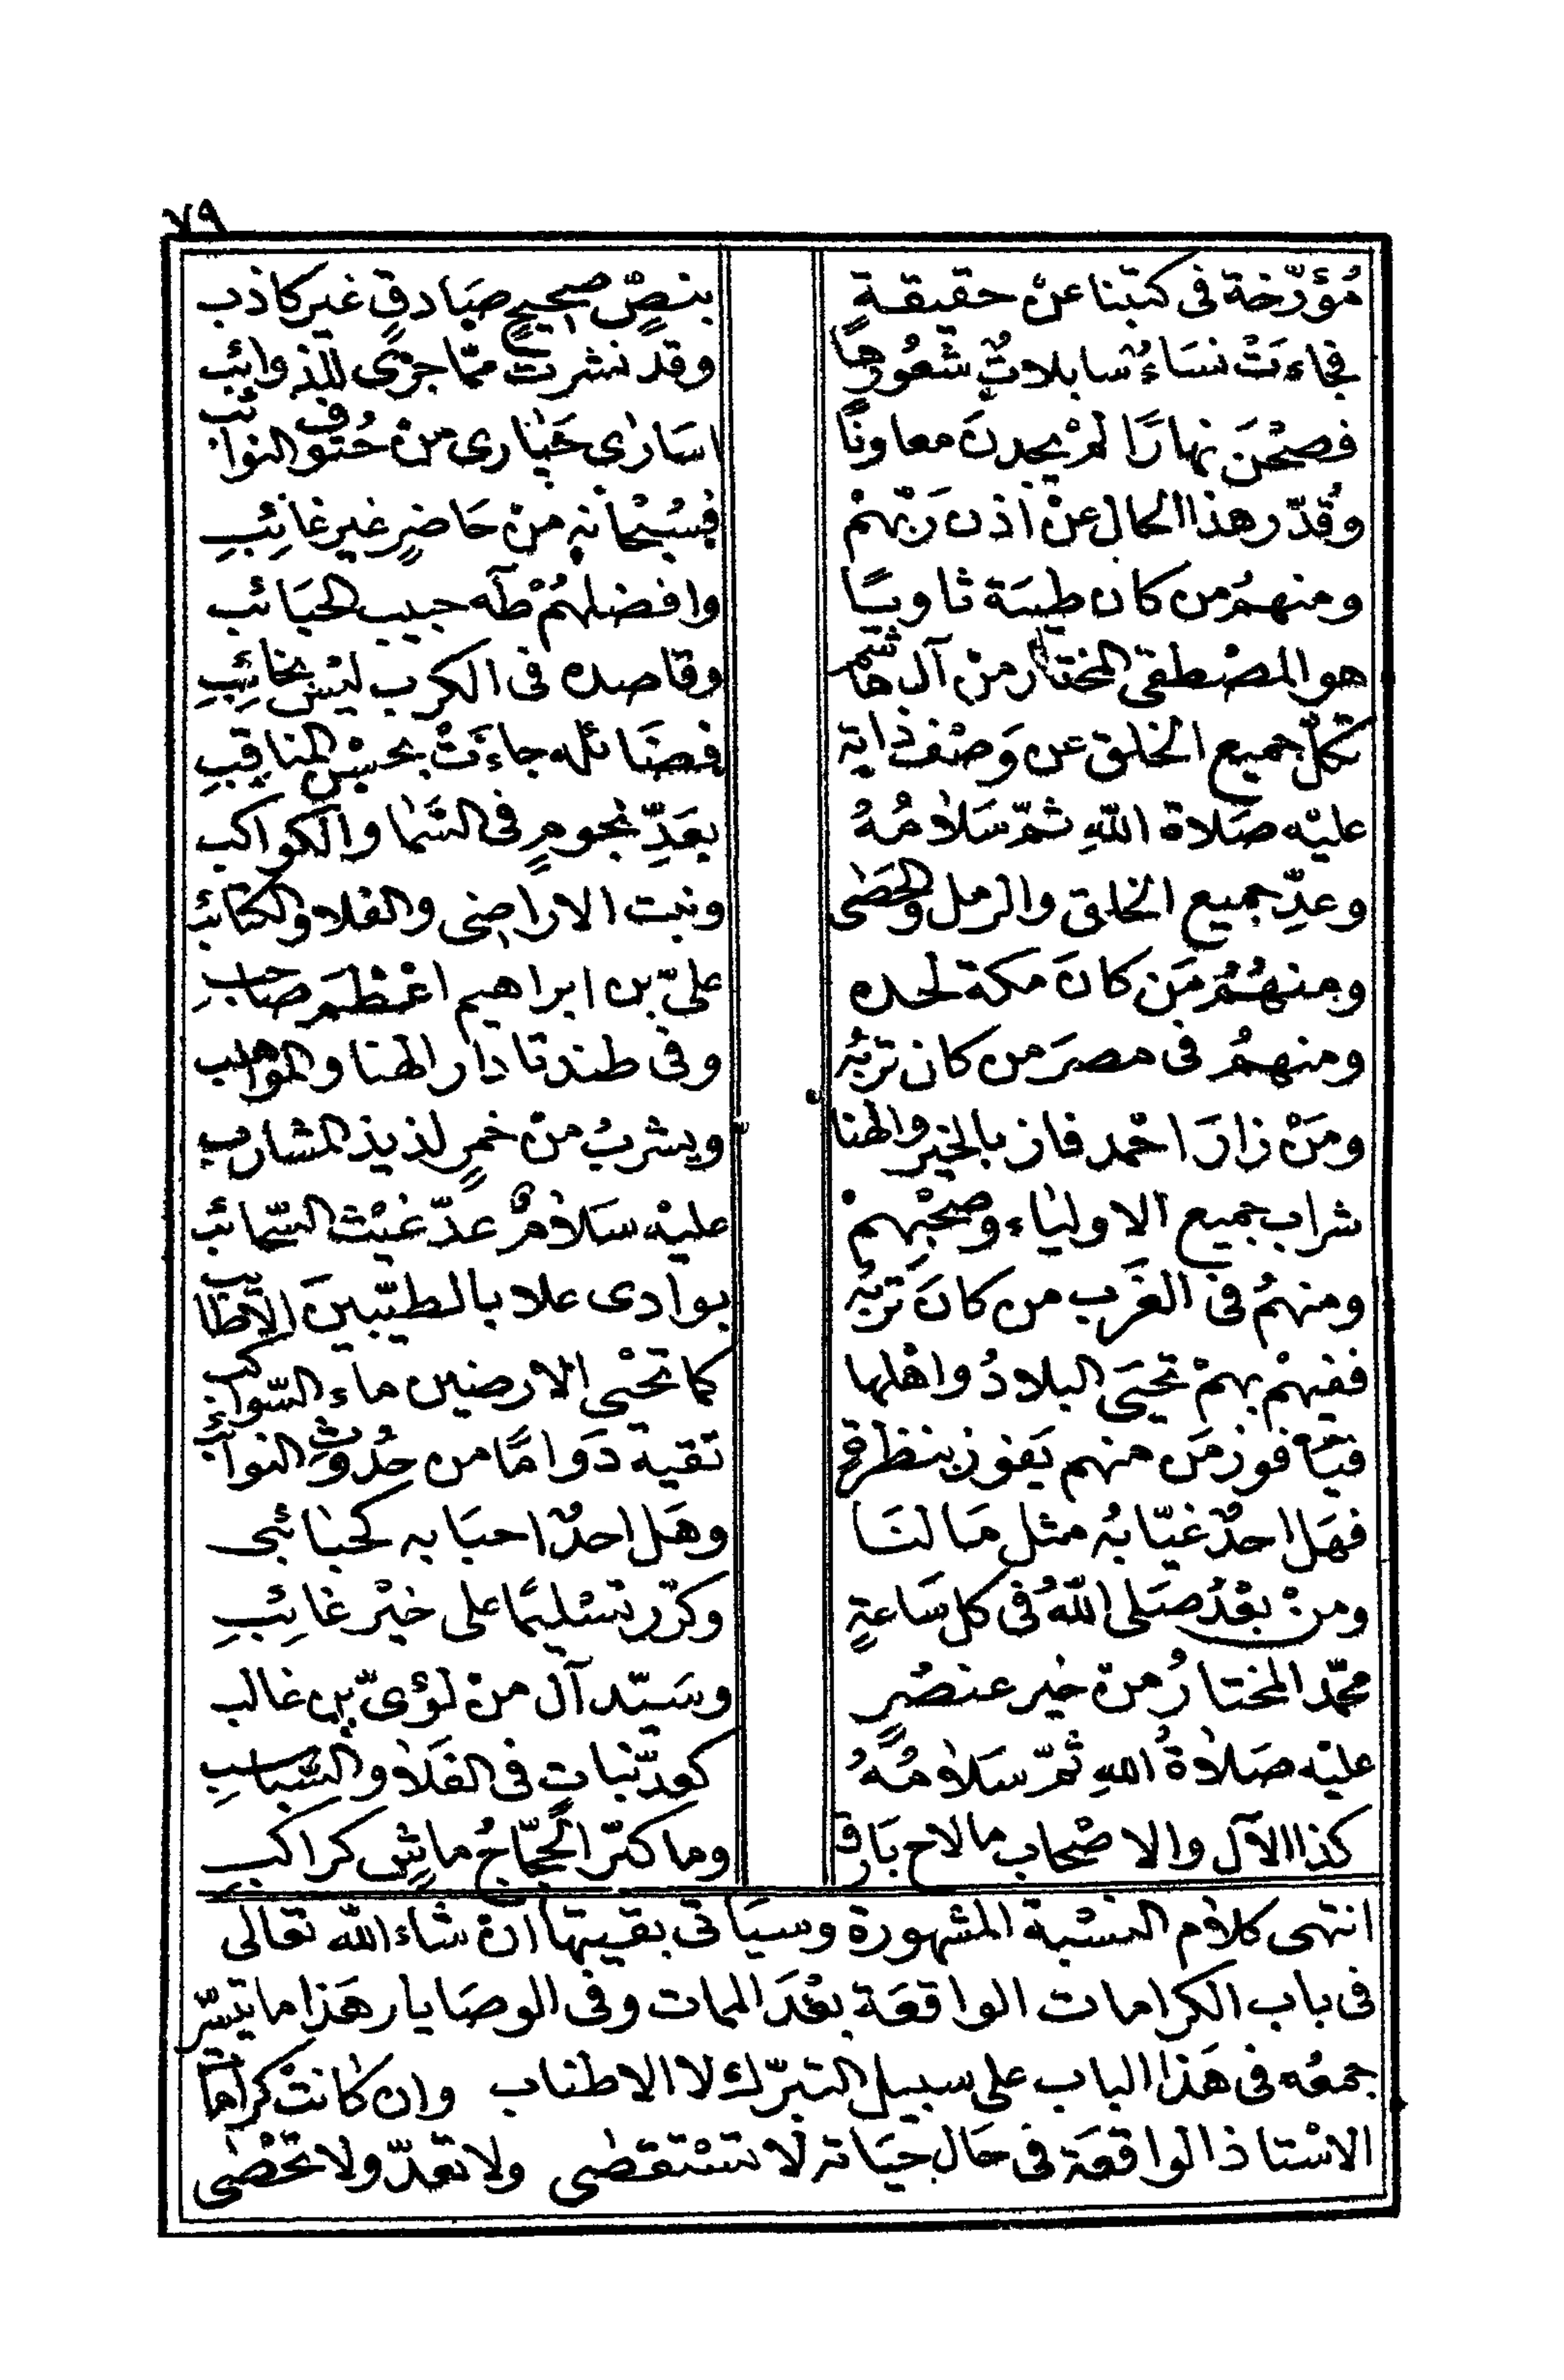 ٧٩
مُؤرّخة فى كتبنا عنْ حقيقةٍ بنصٍّ صحيحٍ صَادقٍ غير كاذب
فجاءَتْ نسَاءٌ سَابلاتٌ شعُورهَا وقد نشرت ممّا جرٰى للذوائب
فصحْنَ نهارًا لمْ يجدنَ معاونًا اسَارٰى حَيَارى منْ حُتوف النوائب
وقُدّر هذا الحال عنْ اذن رَبّهمْ فسُبْحانه منْ حَاضرٍ غير غائبِ
ومنهمُ من كان طيبَة ثاويًا وافضلهُمْ طٰه حبيب الحبَائب
هو المصْطفى المختار منْ آل هاشم وقاصده فى الكرب ليْسَ بخائبِ
تكلّ جميع الخلق عن وَصْف ذاته فضَائله جاءَتْ بحسْن المناقبِ
عليْه صَلاة اللهِ ثمّ سَلامُهُ بعَدِّ نجومٍ فى السَّمَا والكواكب
وعدِّ جميع الخلق والرمل والحصَى ونبت الاراضى والفلا والكتائب
ومنهُمُ مَن كانَ مكة لحده علىّ بن ابراهيم اعْظمَ صَاحبِ
ومنهمُ فى مصرَ من كان تربُه وفى طندتا دار الهنا والمواهب
ومَنْ زارَ احْمد فاز بالخير والهنا ويشربُ منْ خمرٍ لذيذ المشارب
شراب جميع الاوليَاء وصحْبِهمْ عليْه سَلامٌ عدّ غيْث السّحائب
ومنهمُ فى الغَرب من كانَ تربُه بوادى علا بالطيّبينَ الاطايب
ففيهْم بهمْ تحيَى البلادُ واهْلها كما تحْيى الارضين ماء السّواكب
فيَا فوز مَن منهم يَفوز بنظرةٍ تقيه دَوامًا من حُدُوث النوائب
فهَل احدٌ غيّابُه مثل مَا لنَا وهَل احدٌ احبَابه كحبَائبى
ومنْ بعْدُ صَلى اللهُ فى كل سَاعةٍ وكرّر تسْليمًا على خيْر غائبِ
محمّد المختارُ منْ خير عنصُرٍ وسَيّد آل منْ لؤىّ بن غالب
عليْه صَلاةُ اللهِ ثمّ سَلامُهُ كعدّ نباتٍ فى الفَلا والسَّباسبِ
كذا الآل والاصْحاب ما لاح بَارق وما كبّر الحجّاجُ ماشٍ كراكب
انتهى كلام النسْبة المشهورة وسيَأتى بقيتها انْ شَاء الله تعَالى
فى باب الكرامات الواقعَة بعْدَ الممات وفى الوصَايا ر هَذا ما تيسّر
جمعُه فى هَذا الباب على سبيل التبرّك لا الاطناب وان كانتْ كرامات
الاسْتاذ الواقعَة فى حَال حيَاته لا تسْتقصٰى ولا تعدّ ولا تحْصٰى